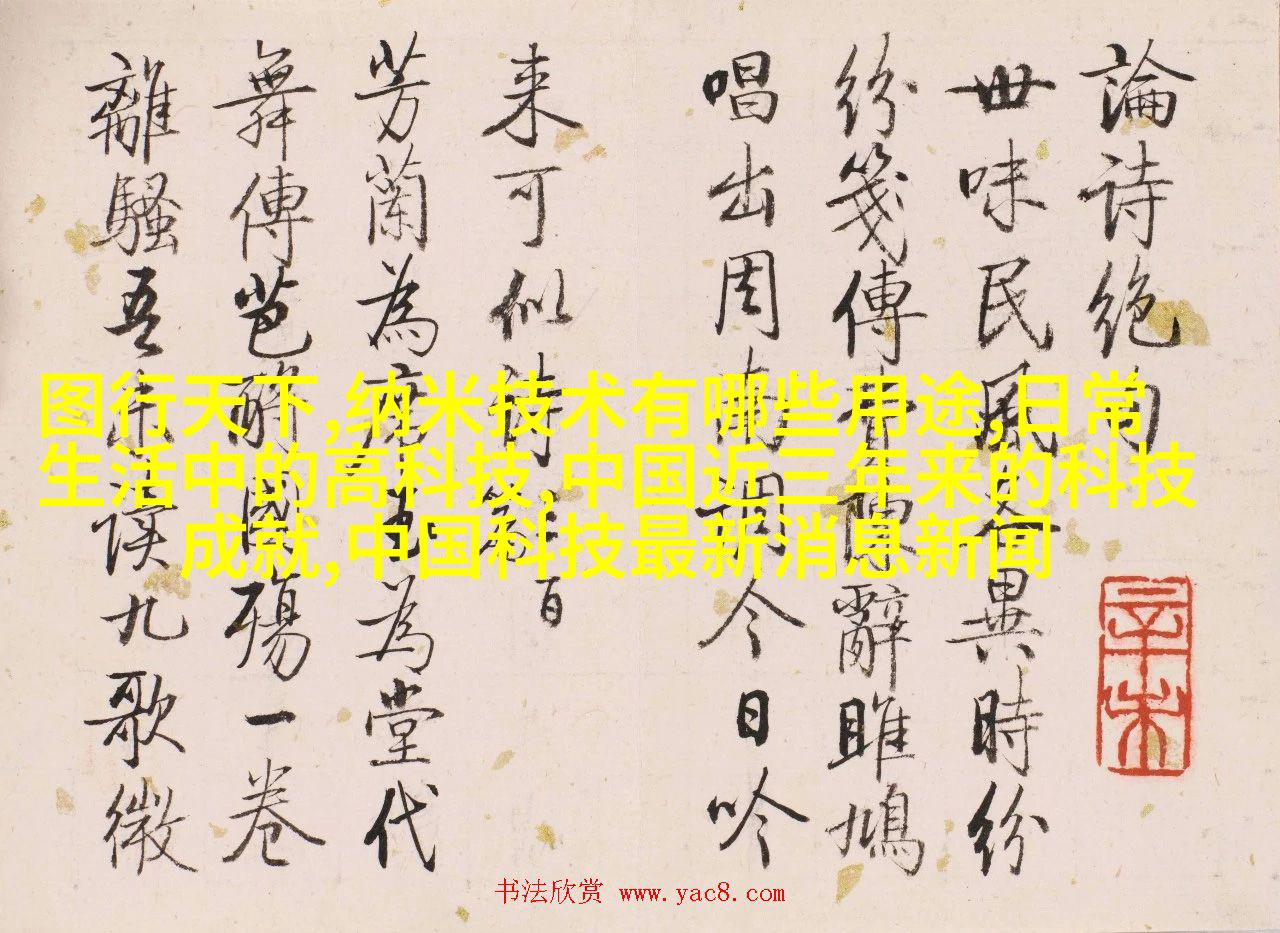 論詩絕句
世味民風各異時紛
紛箋傳辭雎鳩
唱出周南調今日吟
来可似詩百
芳蘭為為堂代
舞傳芭醉國殤一卷
離騷吾讀九歌微
辛未
图行天下,纳米技术有哪些用途,日常
生活中的高科技,中国近三年来的科技
成就,中国科技最新消息新闻
书法欣赏 www.yac8.com